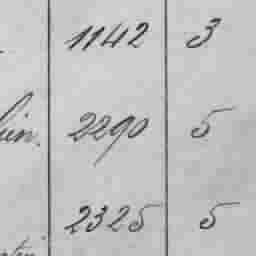 1142 3
2290 5
2325 5